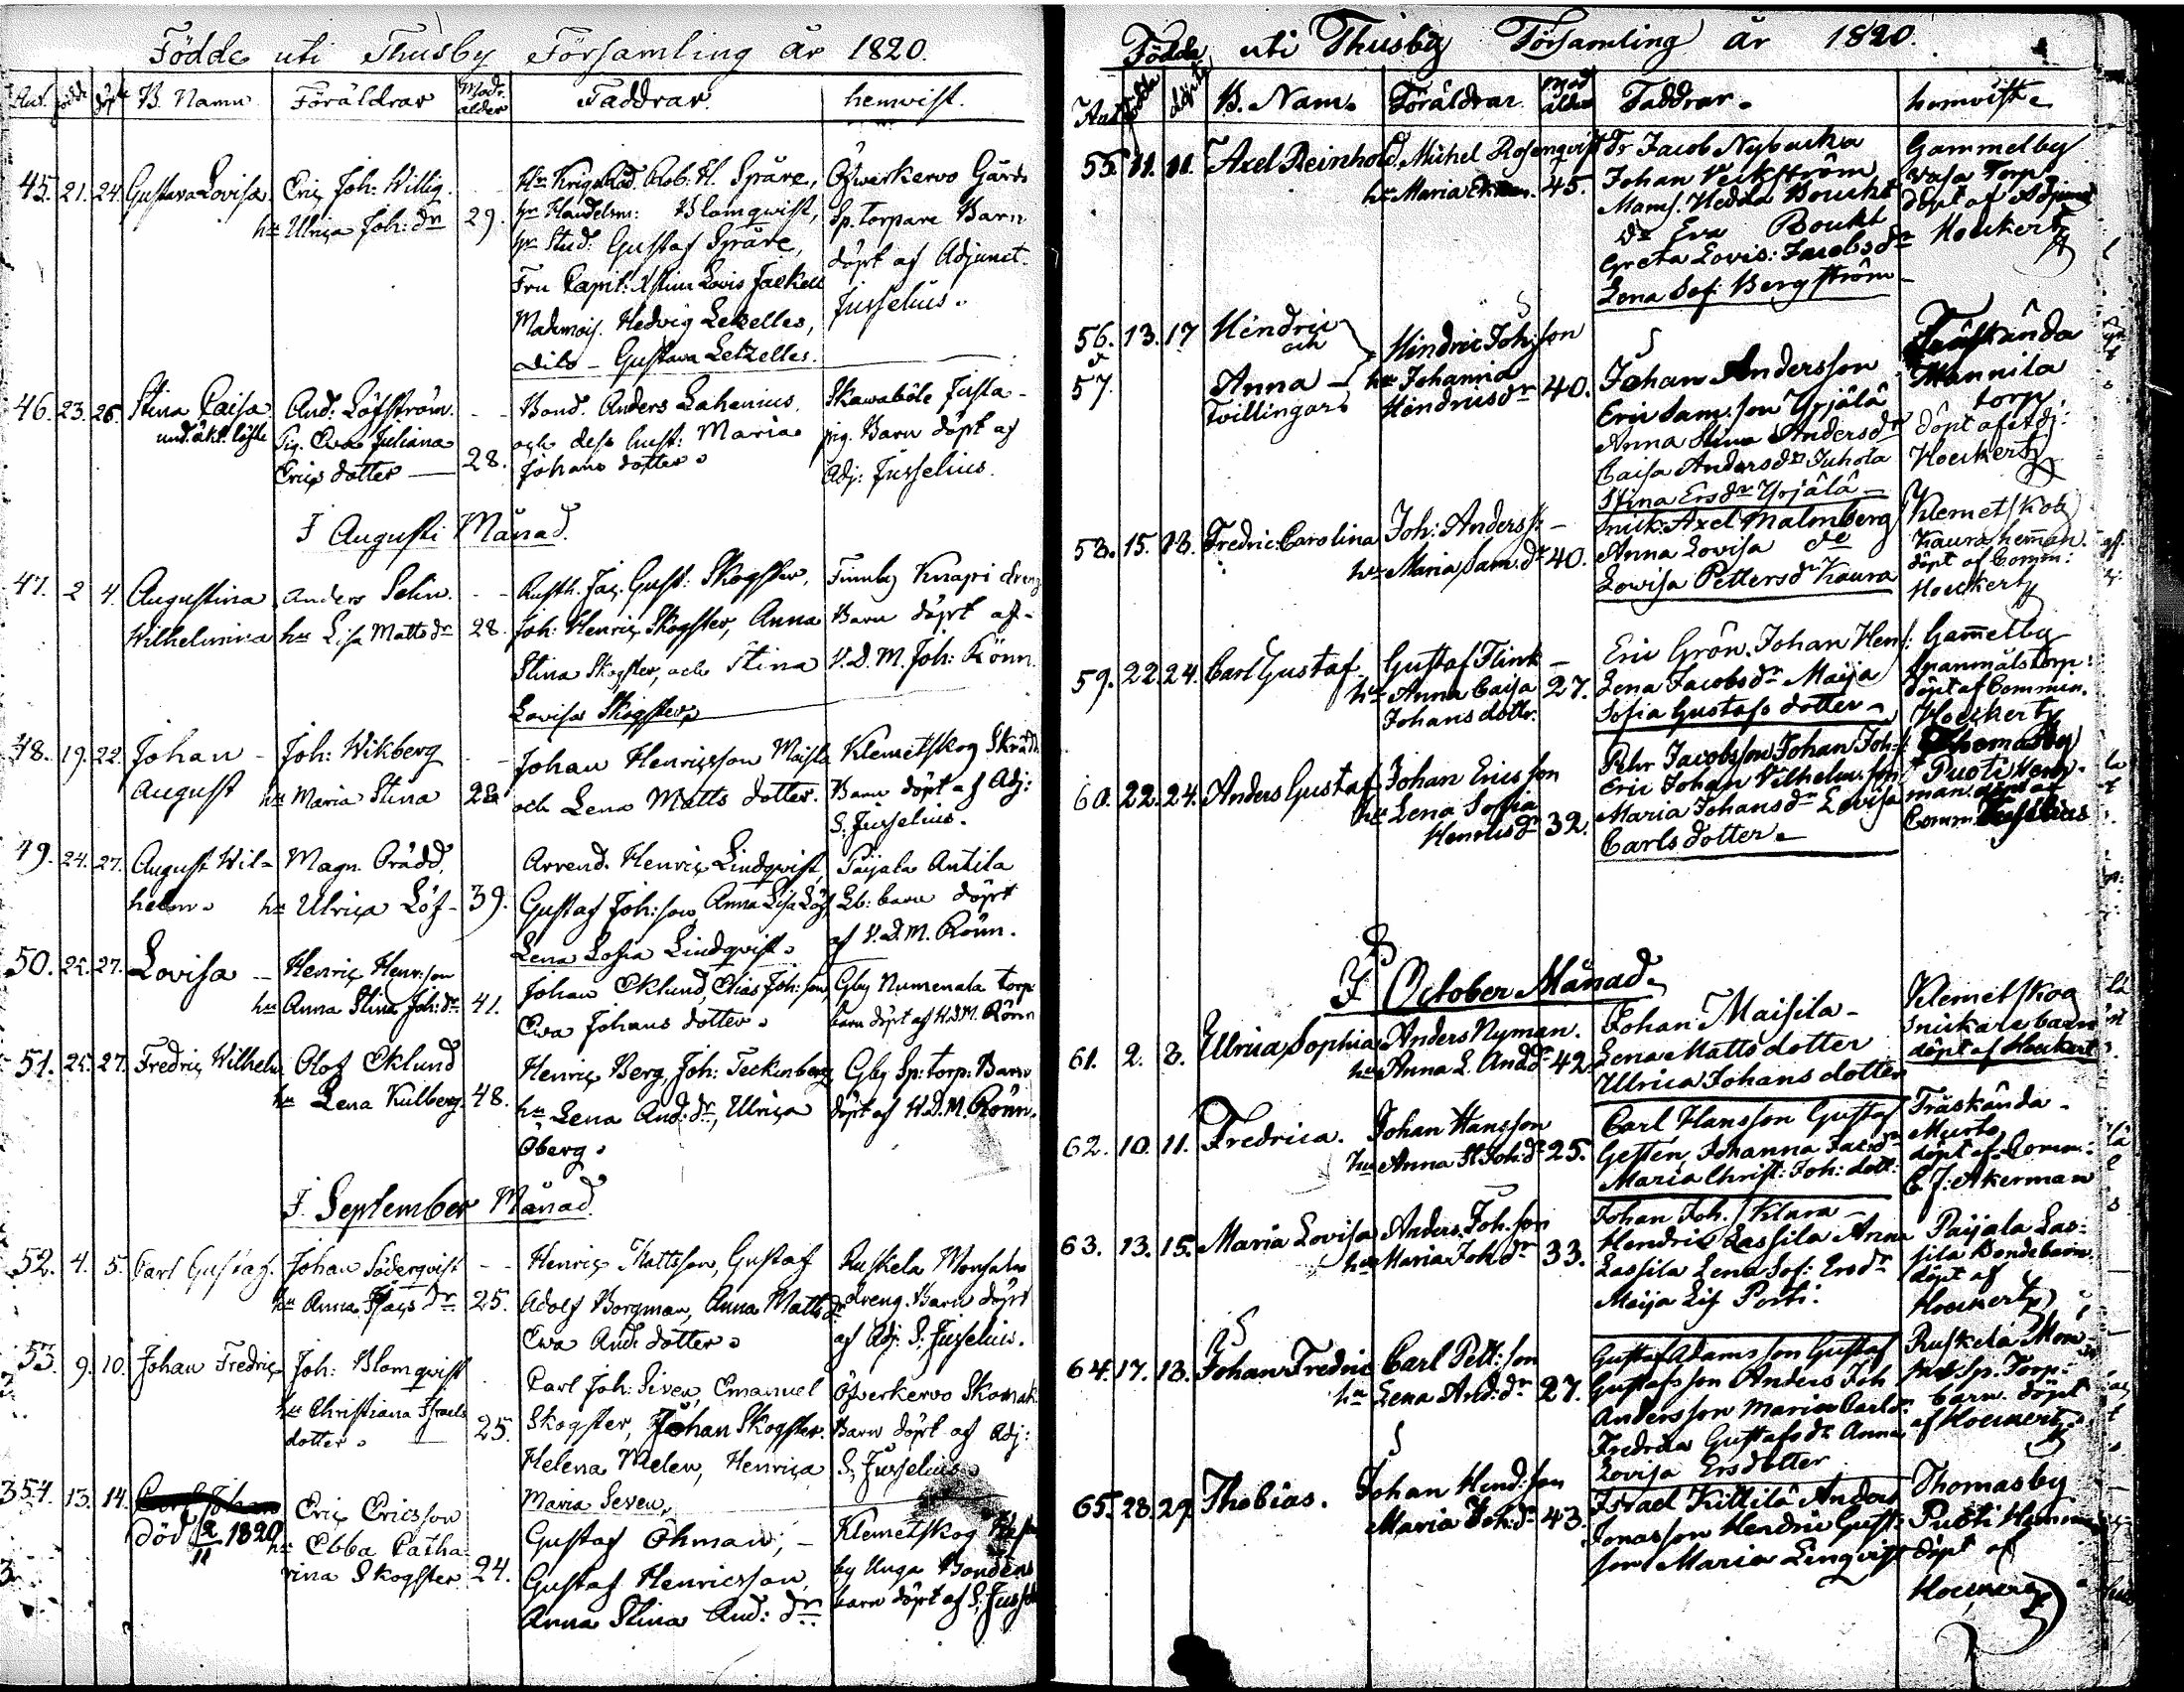 Födde uti Thusby Församling år 1820.
Ant. födde döpte B. Namn Föräldrar Modr. ålder Faddrar. hemvist.
45. 21. 24. Gustava Lovisa. Eric Joh: Willig.
hu Ulrica Joh: dr 29.
Hr Krigs Råd. Rob: H. Spåre,
hr Handelsm: Blomqvist,
hr Stud: Gustaf Spåre,
Fru Capit: Stina Lovis Jackell
Mademois. Hedvig Letzelles,
dito - Gustava Letzelles.
Öfverkervo Gårds
Sp. torpare Barn
döpt af Adjunct.
Jusselius.
46. 23. 26. Stina Caisa
und. äkt. löfte
And: Löfström.
Pig. Eva Juliana
Erics dotter 28.
Bond. Anders Lahenius.
och dess hust: Maria
Johans dotter.
Skavaböle Jusla-
pig. Barn döpt af
Adj: Jusselius.
I Augusti Månad.
47. 2 4. Augustina
Wilhelmina
Anders Selin.
hu Lisa Matts dr 28.
Rusth. Jac. Gust: Skogster,
Joh: Henric Skogster, Anna
Stina Skogster, och Stina
Lovisa Skogster.
Finnby Knapri dreng
Barn döpt af
V. D. M. Joh: Rönn.
48. 19. 22. Johan
August
Joh: Wikberg
hu Maria Stina 28
Johan Henricsson Maisla
och Lena Matts dotter.
Klemetskog Skrädd.
Barn döpt af Adj:
S. Jusselius.
49. 24. 27. August Wil-
helm.
Magn. Prädd.
hu Ulrica Löf- 39.
Arrend. Henric Lindqvist,
Gustaf Joh:son, Anna Lisa Löf
Lena Sofia Lindqvist.
Paijala Antila
Lb: barn döpt
af V. D. M. Rönn.
50. 25. 27. Lovisa
Henric Henr:son
hu Anna Stina Joh: dr 41.
Johan Eklund, Elias Joh:son,
Eva Johans dotter.
Gby Numenala torp
barn döpt af V.D.M. Rönn
51. 25. 27. Fredric Wilhelm
Olof Eklund
hu Lena Kulberg. 48.
Henric Berg, Joh: Teckenberg
hu Lena And: dr, Ulrica
Öberg.
Gby Sp: torp: Barn
döpt af V.D.M. Rönn.
I September Månad.
52. 4. 5. Carl Gustaf.
Johan Söderqvist
hu Anna Isacs dr 25.
Henric Mattsson, Gustaf
Adolf Borgman, Anna Matts dr
Eva And: dotter.
Ruskela Monsabo
dreng. Barn döpt
af Adj: S. Jusselius.
53. 9. 10. Johan Fredric
Joh: Blomqvist
hu Christiana Israels
dotter. 25.
Carl Joh: Siven, Emanuel
Skogster, Johan Skogster.
Helena Melen, Henrica
Maria Seven.
Öfverkervo Skomak.
Barn döpt af Adj:
S. Jusselius.
54. 13. 14. Carl Johan
död 2/11 1820
Eric Ericsson
hu Ebba Catha-
rina Skogster 24.
Gustaf Öhman,
Gustaf Henricsson,
Anna Stina And: dr
Klemetskog
by Unga Bondens
barn döpt af S. Juss
Födde uti Thusby Församling år 1820.
Ant födde döpte B. Nam. Föräldrar. Mod ålder Faddrar. hemvist.
55. 11. 11. Axel Reinhold. Michel Rosenqvist
hu Maria 45.
Fr Jacob Nybacka
Johan Veckström
Mams. Hedda Boucht
dr Eva Boukt
Greta Lovis: Jacobs dr
Lena Sof: Bergström
Gammelby
Vasa Torp.
döpt af Adjunct
Hoeckert
56. 13. 17 Hindric
och
57. Anna
tvillingar
Hindric Joh:son
hu Johanna
Hendricsdr 40.
Johan Andersson
Eric Sam.son Yrjälä
Anna Stina Andersdr
Caisa Andersdr Juhola
Stina Ersdr Yrjälä
Träskända
Mannila
torp.
döpt af Adj:
Hoeckert
58. 15. 18. Fredric: Carolina
Joh: Anderss:
hu Maria Sam. dr 40.
Snick: Axel Malmberg
Anna Lovisa do
Lovisa Petters dr Kaura
Klemetskog
Kaura heman.
döpt af Comm:
Hoeckert
59. 22. 24. Carl Gustaf
Gustaf Flink
hu Anna Caisa 27.
Johans dottr.
Eric Grön. Johan Hens:
Lena Jacobs dr Maija
Sofia Gustafs dotter
Gamelby
Spanmåls torp:
döpt af Commin.
Hoeckert
60. 22. 24. Anders Gustaf
Johan Ericsson
hu Lena Sofia
Henrics dr 32.
Pehr Jacobsson Johan Joh:s
Eric Johan Vilhelm.son
Maria Johans dr Lovisa
Carls dotter
Thomasby
Puoti Hem-
man. döpt af
Comm. Jusselius
I October Månad.
61. 2. 3. Ulrica Sophia
Anders Nyman.
hu Anna L. And. dr 42.
Johan Maisila
Lena Matts dotter
Ulrica Johans dotter
Klemetskog
Snickare barn
döpt af Hoeckert
62. 10. 11. Fredrica.
Johan Hansson
hu Anna St Joh: dr 25.
Carl Hansson Gustaf
Gesten, Johanna Jac: dr
Maria Christ: Joh: dott:
Träskända
Murto
döpt af Comm:
C. J: Akerman
63. 13. 15. Maria Lovisa
Anders Joh.son
hu Maria Joh: dr 33.
Johan Joh. / Klara
Hendric Lassila Anna
Lassila Lena Sof: Ers dr
Maija Lis Porti.
Paijala Las:
sila Bondebarn.
döpt af
Hoeckert
64. 17. 18. Johan Fredric
Carl Pett:son
hu Lena And: dr 27.
Gustaf Adamsson Gustaf
Gustafsson Anders Joh
Andersson Maria Carls dr
Fredrica Gustafs dr Anna
Lovisa Ersdotter
Ruskela Mon-
Sp. Torp:
barn. döpt
af Hoeckert
65. 28. 29. Thobias.
Johan Hend:son
Maria Joh: dr 43.
Israel Kittilä Anders
Jonasson Hendric Gust:
son Maria Lenqvist
Thomasby
Puoti Hemman
döpt af
Hoeckert